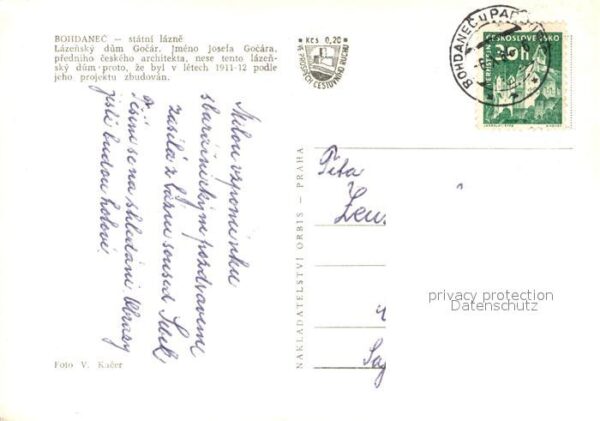 BOHDANEČ — státní lázně
Lázeňský dům Gočár. Jméno Josefa Gočára,
předního českého architekta, nese tento lázeň-
ský dům proto, že byl v létech 1911-12 podle
jeho projektu zbudován.
Kčs 0,20
VE PROSPĚCH CESTOVNÍHO RUCHU
BOHDANEČ U PARD
ČESKOSLOVENSKO
30h
PERNŠTEJN
Milou vzpomínku
s pozdravem
zasílá z lázní soused
Těším se na shledání Obrazy
jistě budou hotové.
NAKLADATELSTVÍ ORBIS — PRAHA
privacy protection
Datenschutz
Foto V. Kačer